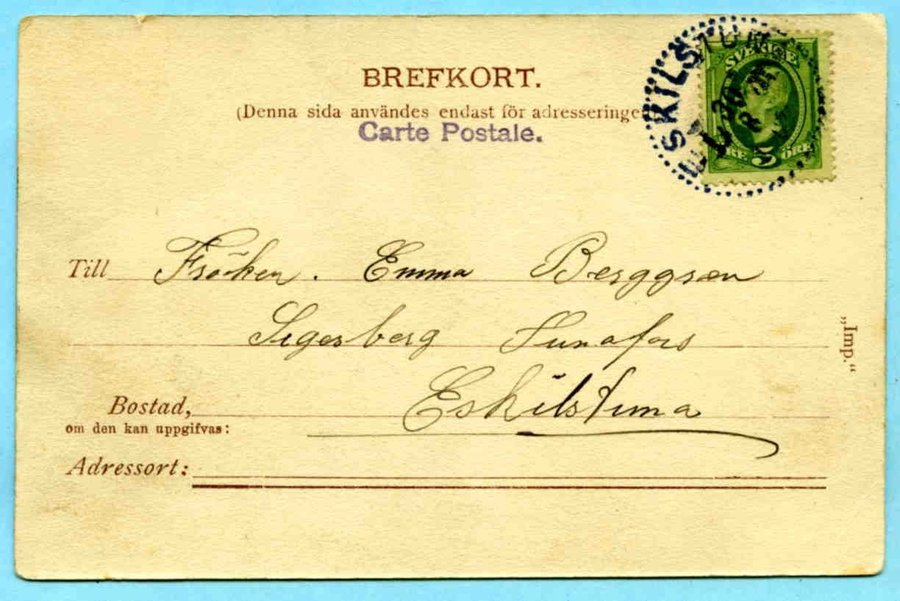 BREFKORT.
(Denna sida användes endast för adresseringe
Carte Postale.
SVERIGE
5 ÖRE
Till Fröken. Emma Berggren
Segersberg Tunafors
Eskilstuna
Bostad,
om den kan uppgifvas:
Adressort:
„Imp.“